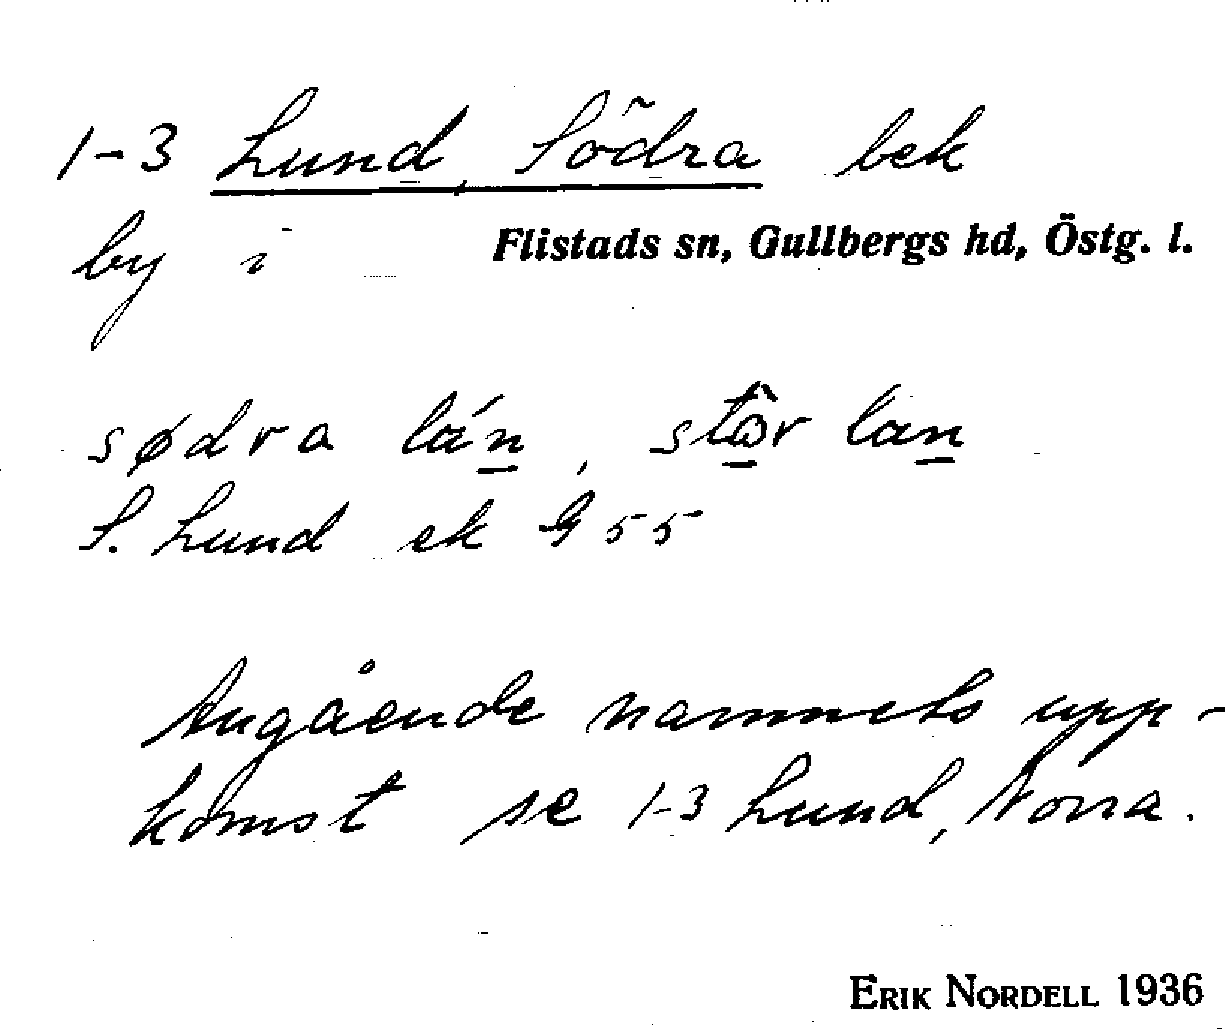 1-3 Lund, Södra bek
by i Flistads sn, Gullbergs hd, Östg. l.
sødra lán, lan
S. Lund ek G 55
Angående namnets upp-
komst se 1-3 Lund, Norra.
ERIK NORDELL 1936